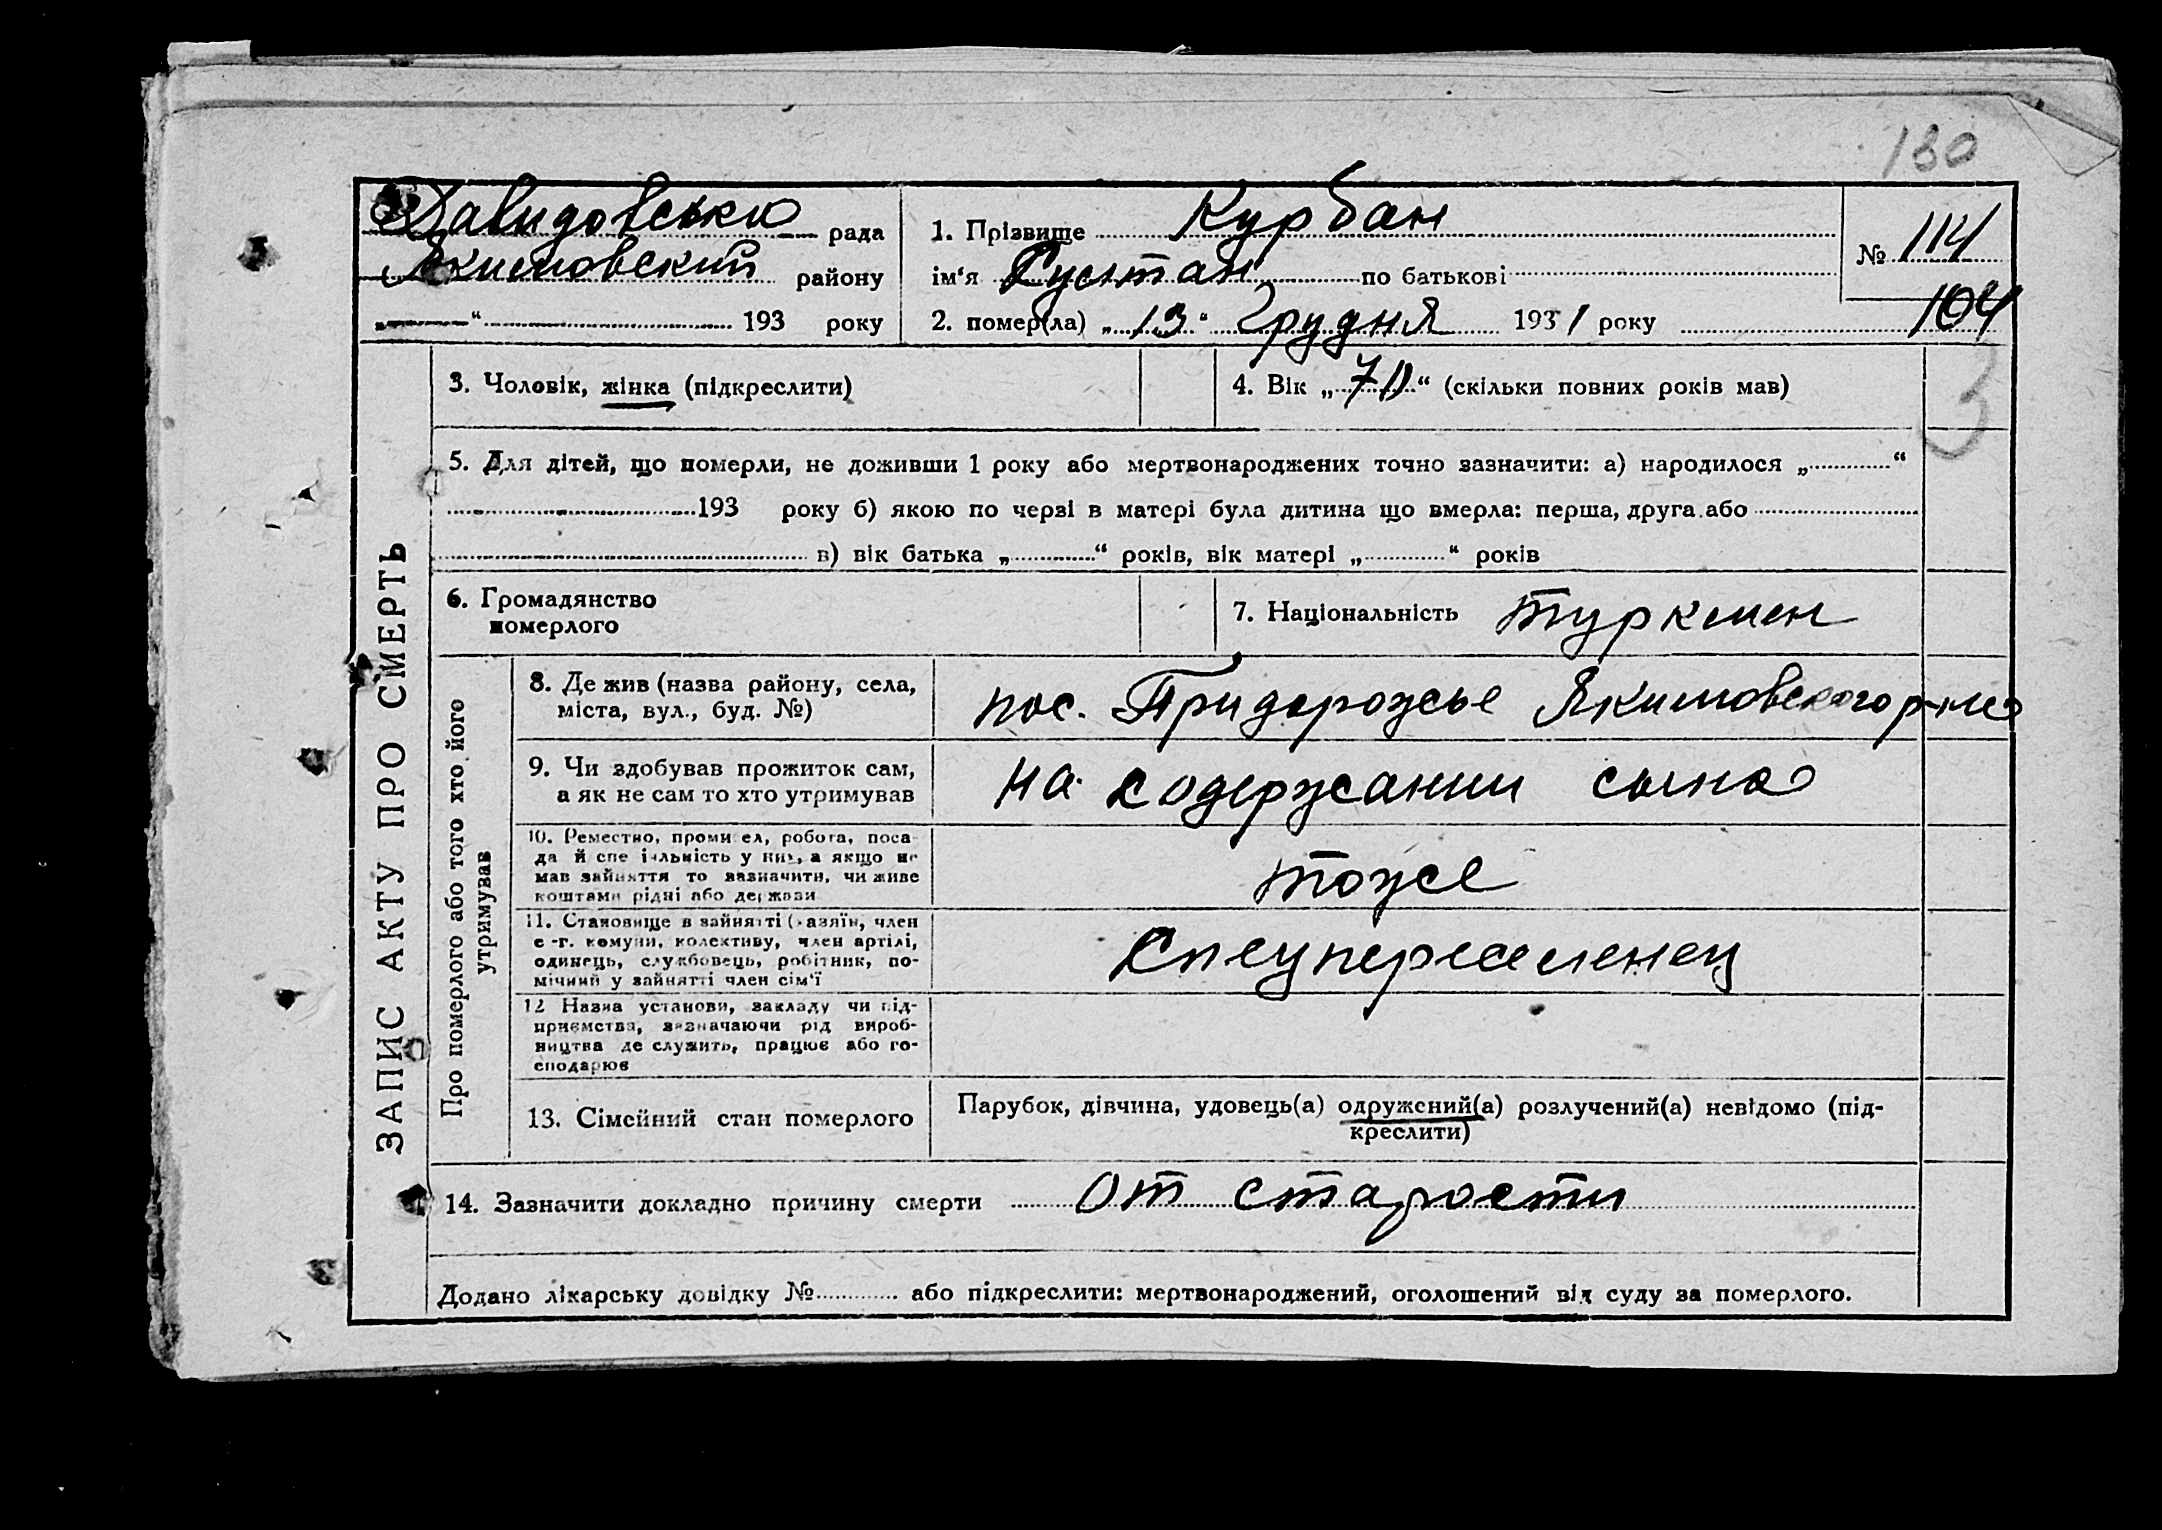 130
Давидовська рада
Якимовский району
„ “ 193 року
1. Прізвище Курбан
ім‘я Султан по батькові
2. помер(ла) „ 13 “ Грудня 1931 року
№ 114
104
3
ЗАПИС АКТУ ПРО СМЕРТЬ
3. Чоловік, жінка (підкреслити)
4. Вік „ 70 “ (скільки повних років мав)
5. Для дітей, що померли, не доживши 1 року або мертвонароджених точно зазначити: а) народилося „ “
193 року б) якою по черзі в матері була дитина що вмерла: перша, друга або
в) вік батька „ “ років, вік матері „ “ років
6. Громадянство
померлого
7. Національність туркмен
Про померлого або того хто його
утримував
8. Де жив (назва району, села,
міста, вул., буд. №)
пос. Придорожье Якимовского р-на
9. Чи здобував прожиток сам,
а як не сам то хто утримував
на содержании сына
10. Ремество, промисел, робота, поса-
да й спеціальність у них, а якщо не
мав зайняття то зазначити, чи живе
коштами рідні або держави
тоже
11. Становище в зайнятті (хазяїн, член
с.-г. комуни, колективу, член артілі,
одинець, службовець, робітник, по-
мічний у зайнятті член сім‘ї
Спецпереселенец
12. Назва установи, закладу чи під-
приємства, зазначаючи рід вироб-
ництва де служить, працює або го-
сподарює
13. Сімейний стан померлого
Парубок, дівчина, удовець(а) одружений(а) розлучений(а) невідомо (під-
креслити)
14. Зазначити докладно причину смерти От старости
Додано лікарську довідку № або підкреслити: мертвонароджений, оголошений від суду за померлого.